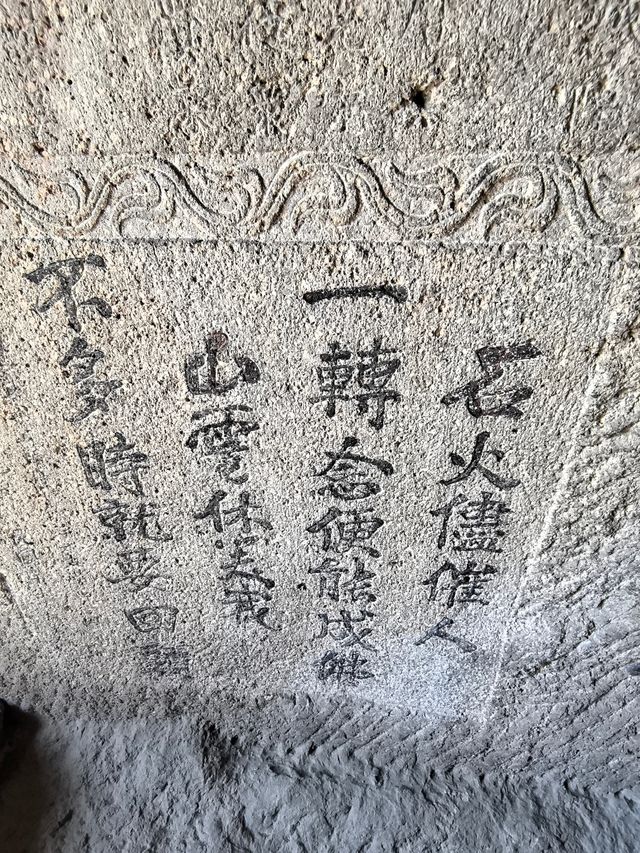 石火儘催人
一轉念便能成佛
山靈休笑我
不多時就要回頭